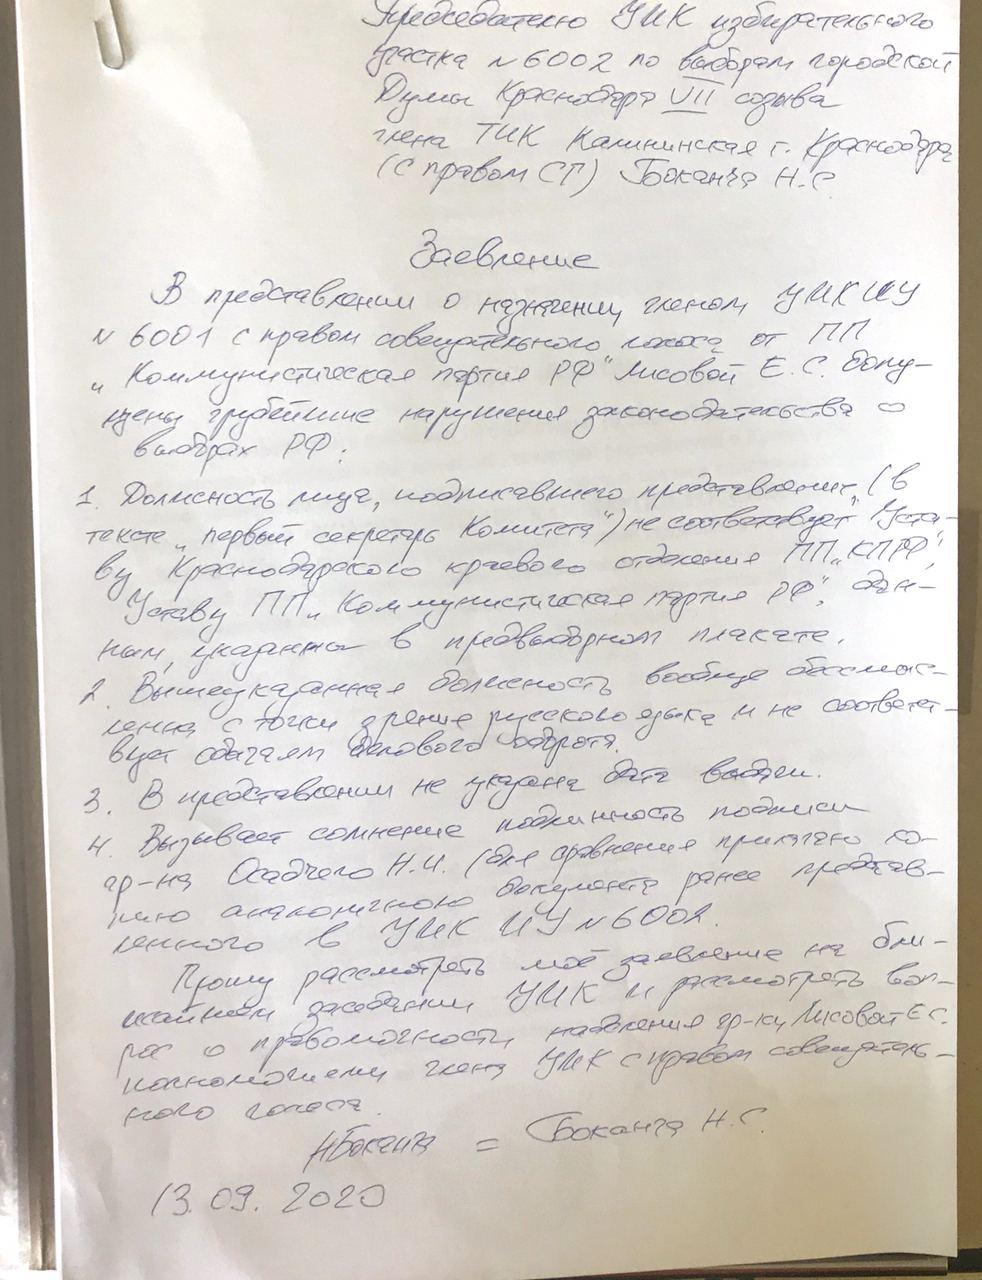 Председателю УИК избирательного
участка N 6002 по выборам городской
Думы Краснодара VII созыва
члена ТИК Калининская г. Краснодара
(с правом СГ) Боканча Н.С.
Заевление
В представлении о назначении членом УИК ИУ
N 6001 с правом совещательного голоса от ПП
„Коммунистическая партия РФ" Лисовой Е.С. допу-
щены грубейшие нарушения законодательства о
выборах РФ:
1. Должность лица, подписавшего представление, (в
тексте „первый секретарь Комитета") не соответствует Уста-
ву Краснодарского краевого отделения ПП „КПРФ",
Уставу ПП „Коммунистическая партия РФ", дан-
ным, указанным в предвыборном плакате.
2. Вышеуказанная должность вообще бессмыс-
ленна с точки зрение русского языка и не соответст-
вует обычаям делового оборота.
3. В представлении не указана дата выдачи.
4. Вызывает сомнение подлинность подписи
гр-на Осадчего Н.И. (для сравнения прилагаю ко-
пию аналогичного документа ранее представ-
ленного в УИК ИУ N 6002.
Прошу рассмотреть моё заявление на бли-
жайшем заседании УИК и рассмотреть воп-
рос о правомочности наделения гр-ку Лисовой Е.С.
полномочиеми члена УИК с правом совещатель-
ного голоса.
НБоканча = Боканча Н.С.
13.09.2020